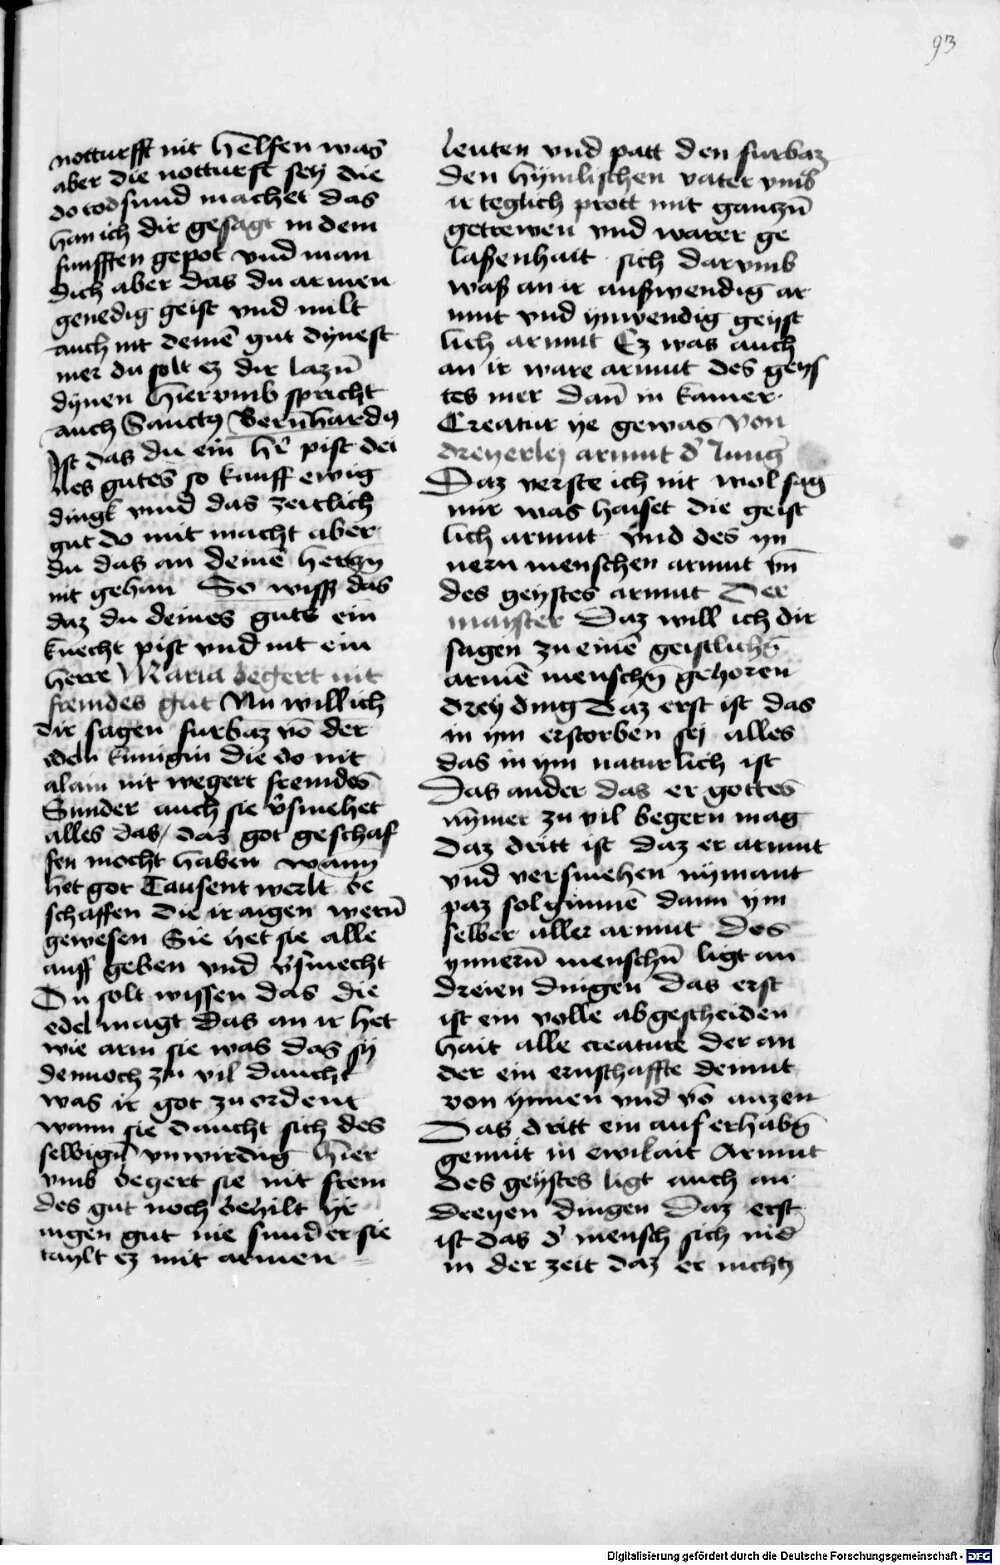 93
notturfft nit helfen was
aber die notturft sey die
do todsund machet das
han ich dir gesagt in dem
funfften gepot vnd man
dich aber das du armen
genedig geist vnd milt
auch nit deinē gut dynest
mer du solt ez dir lazn̄
dynen hiervmb spricht
auch Sanctꝰ Bern̄hardꝰ
Ist das du ein h̄r pist dei
nes gutes so kauff ewig
dingk vmd das zeitlich
gut do mit macht aber
du das an deinē hertzn
nit gehan So wisß das
daz du deines guts ein
knecht pist vnd nit ein
herre Maria begert nit
fremdes gut Nu will ich
dir sagen furbaz vō der
edeln kunigin die do nit
alain nit wegert fremdes
Sunder auch sie v̄smehet
alles das/ daz got geschaf
fen mocht haben wann
het got Tausent werlt be
schaffen die ir aigen wern̄
gewesen Sie het sie alle
auff geben vnd v̄smecht
Du solt wissen das die
edel magt das an ir het
wie arm sie was das sy
dennoch zu vil daucht
was ir got zu ordent
wann sie daucht sich des
selbign̄ vnwirdig hier
vmb begert sie nit frem
des gut noch behilt yr
aigen gut nie sunder sie
taylt ez mit armen
leuten vnd patt den furbaz
den hymlischen vater vmb
ir teglich prott mit ganczn̄
getrewen vnd warer ge
laßenhait sich darvmb
waß an ir außwendig ar
mut vnd ynwendig geyst
lich armut Ez was auch
an ir ware armut des geys
tes mer dan̄ in kainer
Creatur ye gewas Von
dreyerley armut d̓ Jung
Daz verste ich nit wol sag
mir was haiset die geist
lich armut vnd des yn
nern menschen armut vn̄
des geystes armut Der
mayster Daz will ich dir
sagen zu einē geistlichn̄
armē menschn̄ gehoren
drey ding Daz erst ist das
in ym erstorben sej alles
das in ym naturlich ist
Das ander das er gottes
nymer zu vil begern mag
Daz dritt ist daz er armut
vnd versmehen nymant
paz sol gunnē dann ym
selber aller armut Des
ynnern̄ menschn̄ ligt an
dreien dingen das erst
ist ein volle abgescheiden
hait alle creature der an
der ein ernsthaffte demut
von ynnen vnd vō auzen
Das dritt ein auf erhabn̄
gemüt in ewikait Armut
des geystes ligt auch an
dreyen dingen Daz erst
ist das d̓ mensch sich nid̓
in der zeit daz er nichtz
Digitalisierung gefördert durch die Deutsche Forschungsgemeinschaft - DFG